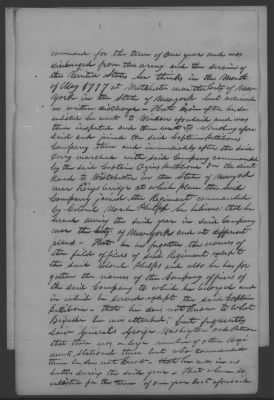 commence for the term of one year and was
discharged from the army and the service of
the United States he thinks in the month
of May 1777 at Westchester near the City of New-
York in the State of New York but received
no written discharge – That soon after he en-
listed he went to Windsor aforesaid and was
then inspected and then went to aforesaid
and joined the said Captain
Company there and immediately after the said
marched with said Company commanded
by the said Captain Ozias Pettibone on the direct
Road to Westchester in the State of New York
near Kings bridge at which place the said
Company joined the Regiment commanded
by Colonel Noah Phelps he believes, that he
served during the said year in said Company
near the City of New York and at different
places – That he has forgotten the names of
the field officers of said Regiment except
the said Colonel Phelps and also he has for-
gotten the names of the Company officers of
the said Company to which he belonged and
in which he served except the said Captain
Pettibone – that he does not know to what
Brigade he was attached, but frequently
saw General George Washington and
that there was a large number of other Regi-
ments stationed there but who commanded
them he does not know – that he was in no
battle during the said year – That when he
enlisted for the term of one year last aforesaid